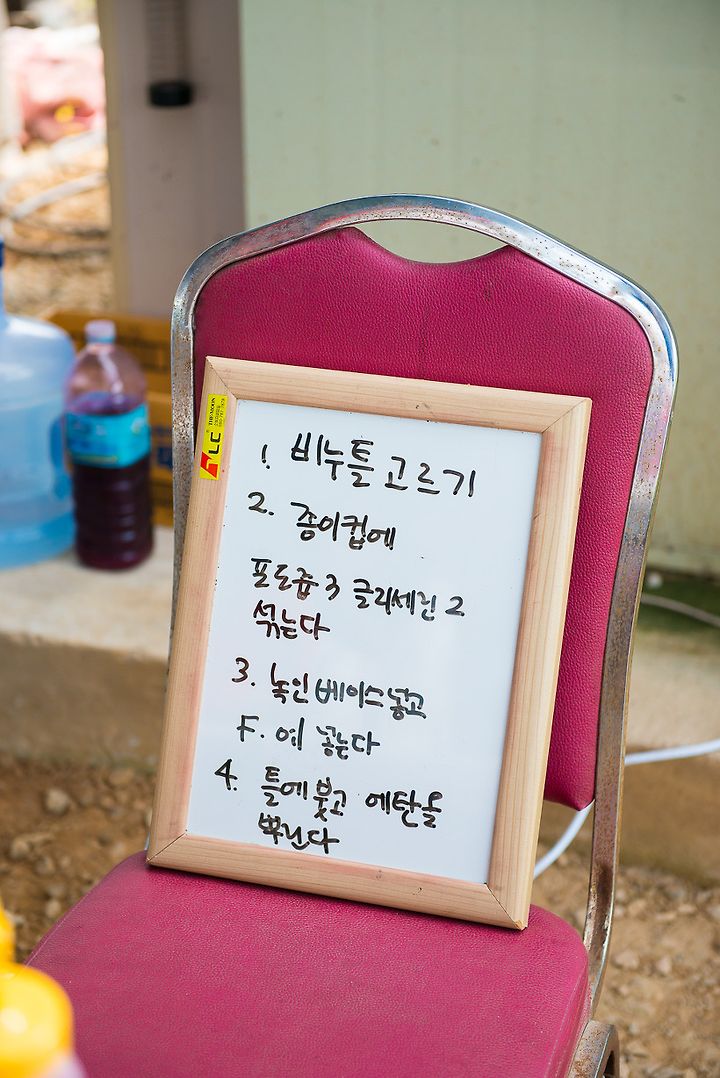 1. 비누틀 고르기
2. 종이컵에
포도즙 3 글리세린 2
섞는다
3. 녹인 베이스넣고
F. 에 넣는다
4. 틀에 붓고 에탄올
뿌린다